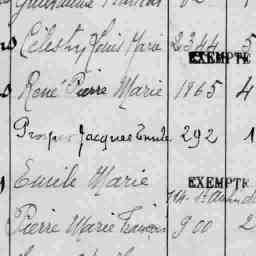 Louis Marie 2344 5
EXEMPTÉ
René Pierre Marie 1865 4
Prosper Jacques Emile 292 1
Emile Marie EXEMPTÉ
Pierre Marie François 900 2